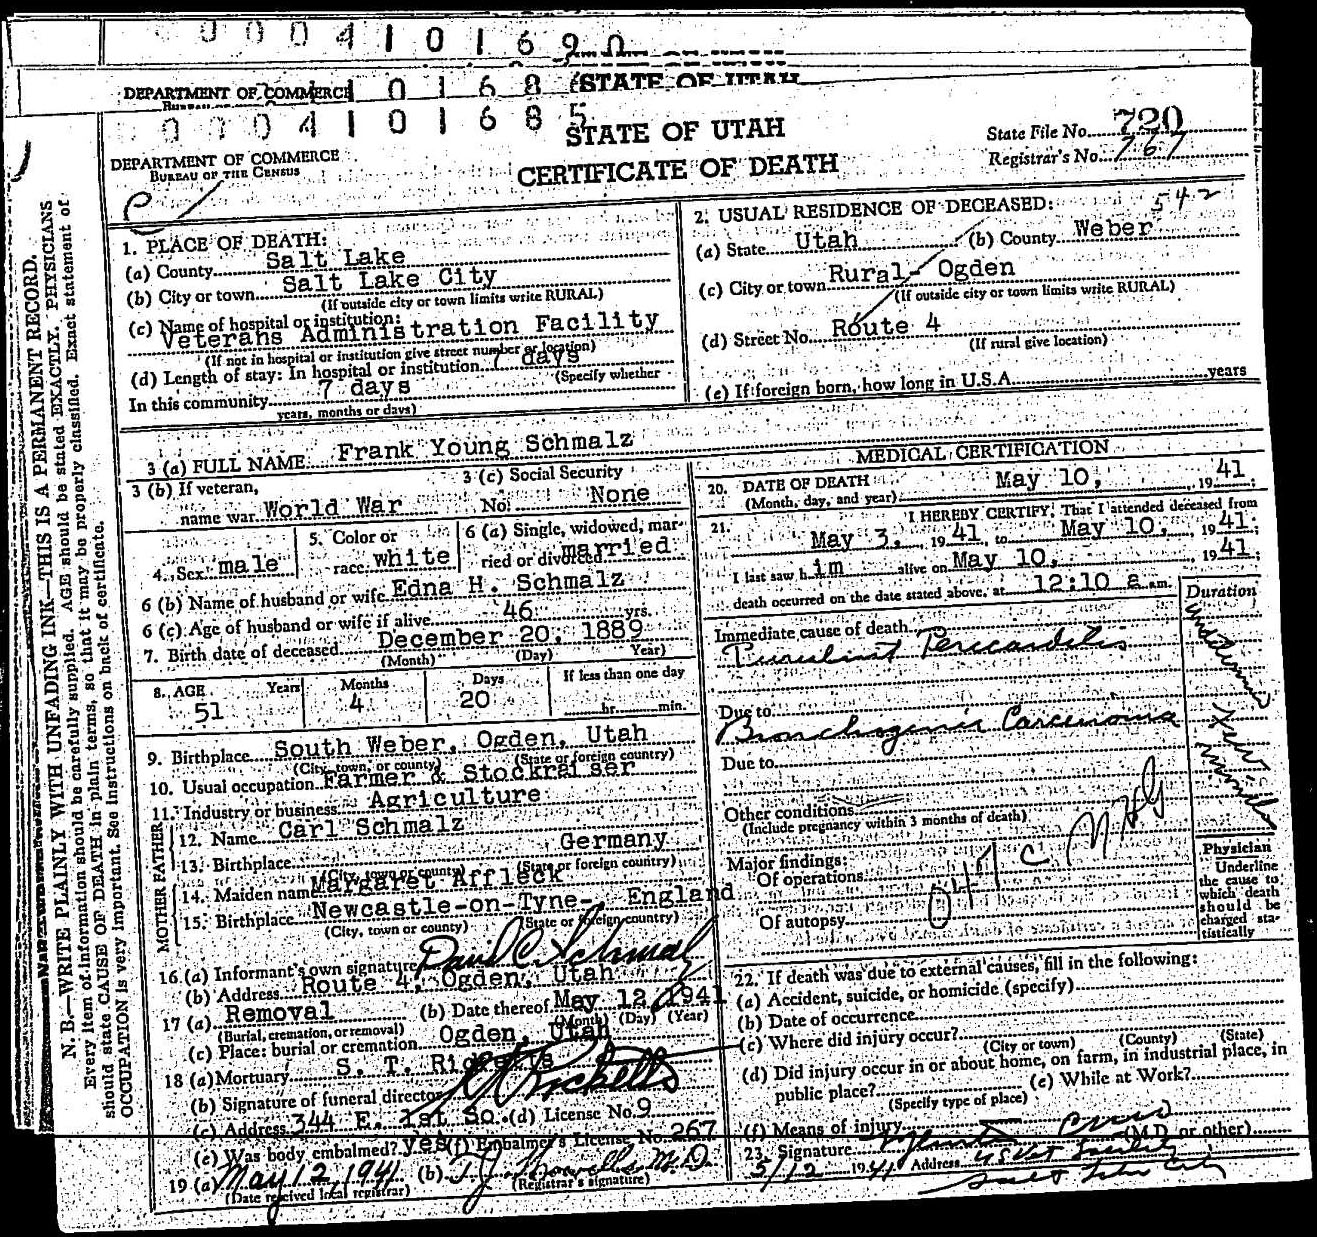 0 0 0 4 1 0 1 6 9 0
DEPARTMENT OF COMMERCE 1 0 1 6 8 STATE OF UTAH
0 0 0 4 1 0 1 6 8 5
STATE OF UTAH
CERTIFICATE OF DEATH
State File No. 720
Registrar's No. 767
DEPARTMENT OF COMMERCE
BUREAU OF THE CENSUS
N. B.—WRITE PLAINLY WITH UNFADING INK—THIS IS A PERMANENT RECORD.
Every item of information should be carefully supplied. AGE should be stated EXACTLY. PHYSICIANS
should state CAUSE OF DEATH in plain terms, so that it may be properly classified. Exact statement of
OCCUPATION is very important. See instructions on back of certificate.
1. PLACE OF DEATH:
(a) County Salt Lake
(b) City or town Salt Lake City
(If outside city or town limits write RURAL)
(c) Name of hospital or institution:
Veterans Administration Facility
(If not in hospital or institution give street number or location)
(d) Length of stay: In hospital or institution 7 days
(Specify whether
In this community 7 days
years, months or days)
2. USUAL RESIDENCE OF DECEASED: 542
(a) State Utah (b) County Weber
(c) City or town Rural- Ogden
(If outside city or town limits write RURAL)
(d) Street No. Route 4
(If rural give location)
(e) If foreign born, how long in U.S.A. years
3 (a) FULL NAME Frank Young Schmalz
3 (b) If veteran,
name war World War
3 (c) Social Security
No. None
4. Sex male
5. Color or
race white
6 (a) Single, widowed, mar-
ried or divorced married
6 (b) Name of husband or wife Edna H. Schmalz
6 (c) Age of husband or wife if alive 46 yrs.
7. Birth date of deceased December 20, 1889
(Month) (Day) Year)
8. AGE Years Months Days If less than one day
51 4 20 hr. min.
9. Birthplace South Weber, Ogden, Utah
(City, town, or county) (State or foreign country)
10. Usual occupation Farmer & Stockraiser
11. Industry or business Agriculture
FATHER
12. Name Carl Schmalz
13. Birthplace Germany
(City, town or county) (State or foreign country)
MOTHER
14. Maiden name Margaret Affleck
15. Birthplace Newcastle-on-Tyne-, England
(City, town or county) (State or foreign country)
16. (a) Informant's own signature David C. Schmalz
(b) Address Route 4, Ogden, Utah
17 (a) Removal (b) Date thereof May 12, 1941
(Burial, cremation, or removal) (Month) (Day) (Year)
(c) Place: burial or cremation Ogden, Utah
18 (a) Mortuary S. T. Ricketts
(b) Signature of funeral director Ricketts
(c) Address 344 E. 1st So. (d) License No. 9
(e) Was body embalmed? yes (f) Embalmer's License No. 267
19 (a) May 12, 1941 (b) T. J. Howells M.D.
(Date received local registrar) (Registrar's signature)
MEDICAL CERTIFICATION
20. DATE OF DEATH May 10, 1941
(Month, day, and year)
21. I HEREBY CERTIFY, That I attended deceased from
May 3, 1941, to May 10, 1941;
I last saw him alive on May 10, 1941,
death occurred on the date stated above, at 12:10 a m.
Duration
Immediate cause of death
Purulent Pericarditis
undetermined
Due to
Bronchogenic Carcinoma
Few months
Due to
Other conditions
(Include pregnancy within 3 months of death)
Major findings:
Of operations
Of autopsy
047 c
Physician
Underline
the cause to
which death
should be
charged sta-
tistically
22. If death was due to external causes, fill in the following:
(a) Accident, suicide, or homicide (specify)
(b) Date of occurrence
(c) Where did injury occur?
(City or town) (County) (State)
(d) Did injury occur in or about home, on farm, in industrial place, in
public place? (e) While at Work?
(Specify type of place)
(f) Means of injury
23. Signature (M.D. or other)
5/12 1941 Address US Vet Facility
Salt Lake City